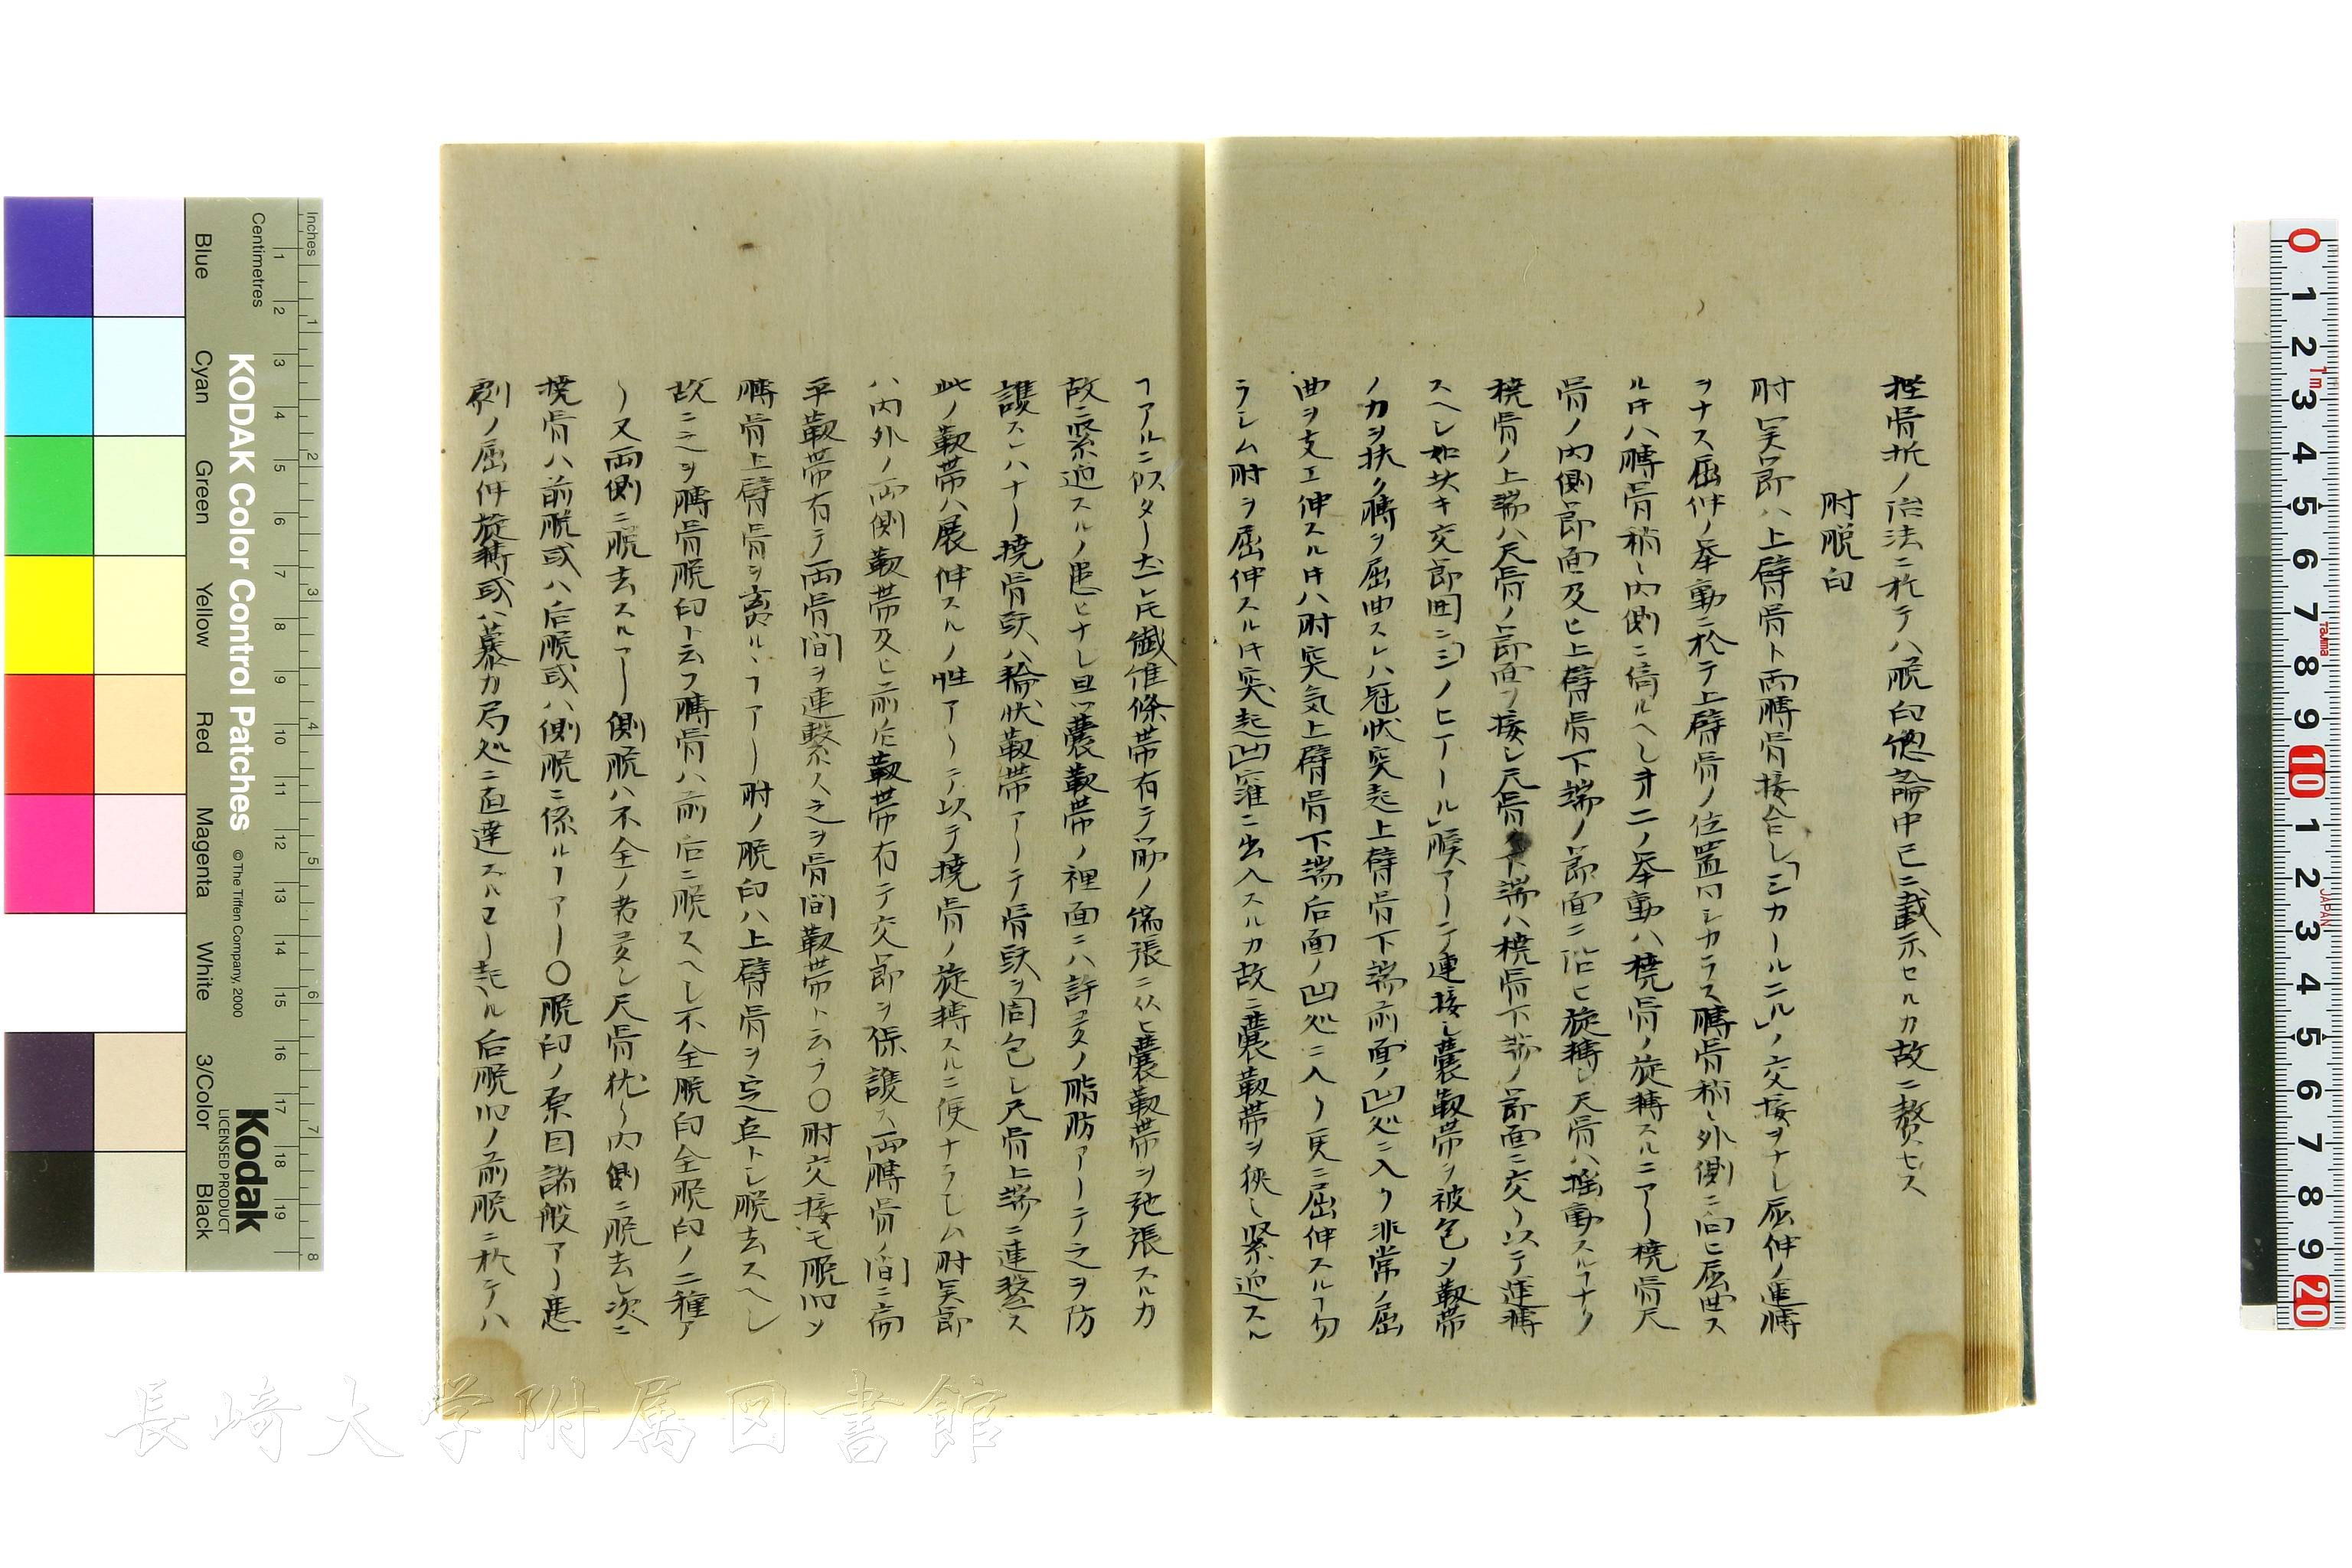 挫骨折ノ治法ニ於テハ脱臼総論中已ニ載示セルカ故ニ贅セス
肘脱臼
肘関節ハ上臂骨ト両膊骨接合シ「シカールニル」ノ交接ヲナシ屈伸ノ運轉
ヲナス屈伸ノ挙動ニ於テ上臂骨ノ位置同シカラス膊骨稍々外側ニ向ヒ屈曲ス
ル片ハ膊骨稍々内側ニ倚ルヘシ才二ノ挙動ハ橈骨ノ旋轉スルニアリ橈骨尺
骨ノ内側節面及ヒ上臂骨下端ノ節面ニ沿ヒ旋轉シ尺骨ハ揺動スルヿナク
橈骨ノ上端ハ尺骨ノ節面ヲ接シ尺骨下端ハ橈骨下端ノ節面ニ交リ以テ運轉
スヘシ如此キ交節囲ニ「シノヒアール」膜アリテ連接シ嚢靱帯ヲ被包ヲ靱帯
ノ力ヲ扶ク膊ヲ屈曲スレハ冠状突起上臂骨下端前面ノ凹処ニ入ク非常ノ屈
曲ヲ支エ伸スル片ハ肘突気上臂骨下端后面ノ凹処ニ入リ更ニ屈伸スルヿ勿
ラシム肘ヲ屈伸スル片突起凹窪ニ出入スルカ故ニ嚢靱帯ヲ狭シ緊迫スル
ヿアルニ似タリ去レ𪜈纎維條帯有テ筋ノ偏張ニ从ヒ嚢靱帯ヲ弛張スルカ
故ニ緊迫スルノ患ヒナシ且ツ嚢靱帯ノ裡面ニハ許多ノ脂肪アリテ之ヲ防
護スレハナリ橈骨頭ハ輪状靱帯アリテ骨頭ヲ周包シ尺骨上端ニ連整ス
此ノ靱帯ハ展伸スルノ性アリテ以テ橈骨ノ旋轉スルニ便ナラシム肘関節
ハ内外ノ両側靱帯及ヒ前后靱帯有テ交節ヲ保護ス両膊骨ノ間ニ扁
平靱帯有テ両骨間ヲ連繋ス之ヲ骨間靱帯ト云フ〇肘交接モ脱臼ヲ
膊骨上臂骨ヲ离ルヽヿアリ肘ノ脱臼ハ上臂骨ヲ定在トシ脱去スヘシ
故ニ之ヲ膊骨脱臼ト云フ膊骨ハ前后ニ脱スヘシ不全脱臼全脱臼ノ二種ア
リ又両側ニ脱去スルアリ側脱ハ不全ノ者多シ尺骨状リ内側ニ脱去シ次ニ
橈骨ハ前脱或ハ后脱或ハ側脱ニ係ルヿアリ〇脱臼ノ原因諸般アリ悪
劇ノ屈伸旋轉或ハ暴力局処ニ直達スルヨリ起ル后脱臼ノ前脱ニ於テハ
KODAK Color Control Patches
© The Tiffen Company, 2000
Kodak
LICENSED PRODUCT
Inches
Centimetres
Blue
Cyan
Green
Yellow
Red
Magenta
White
3/Color
Black
長崎大学附属図書館